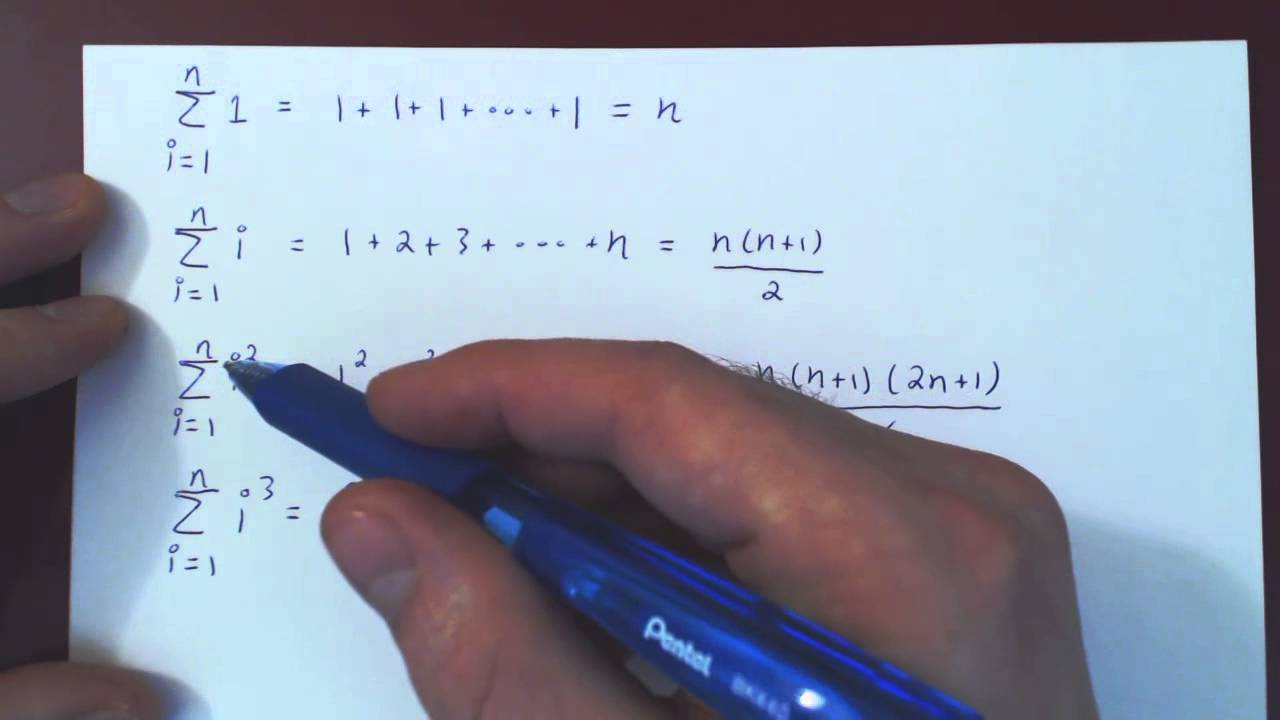 n
∑ 1 = 1 + 1 + 1 + ···· + 1 = n
i=1
n
∑ i = 1 + 2 + 3 + ···· + n = n(n+1)
i=1 2
n
∑ i² 1² ² n(n+1)(2n+1)
i=1
n
∑ i³ =
i=1
Pentel